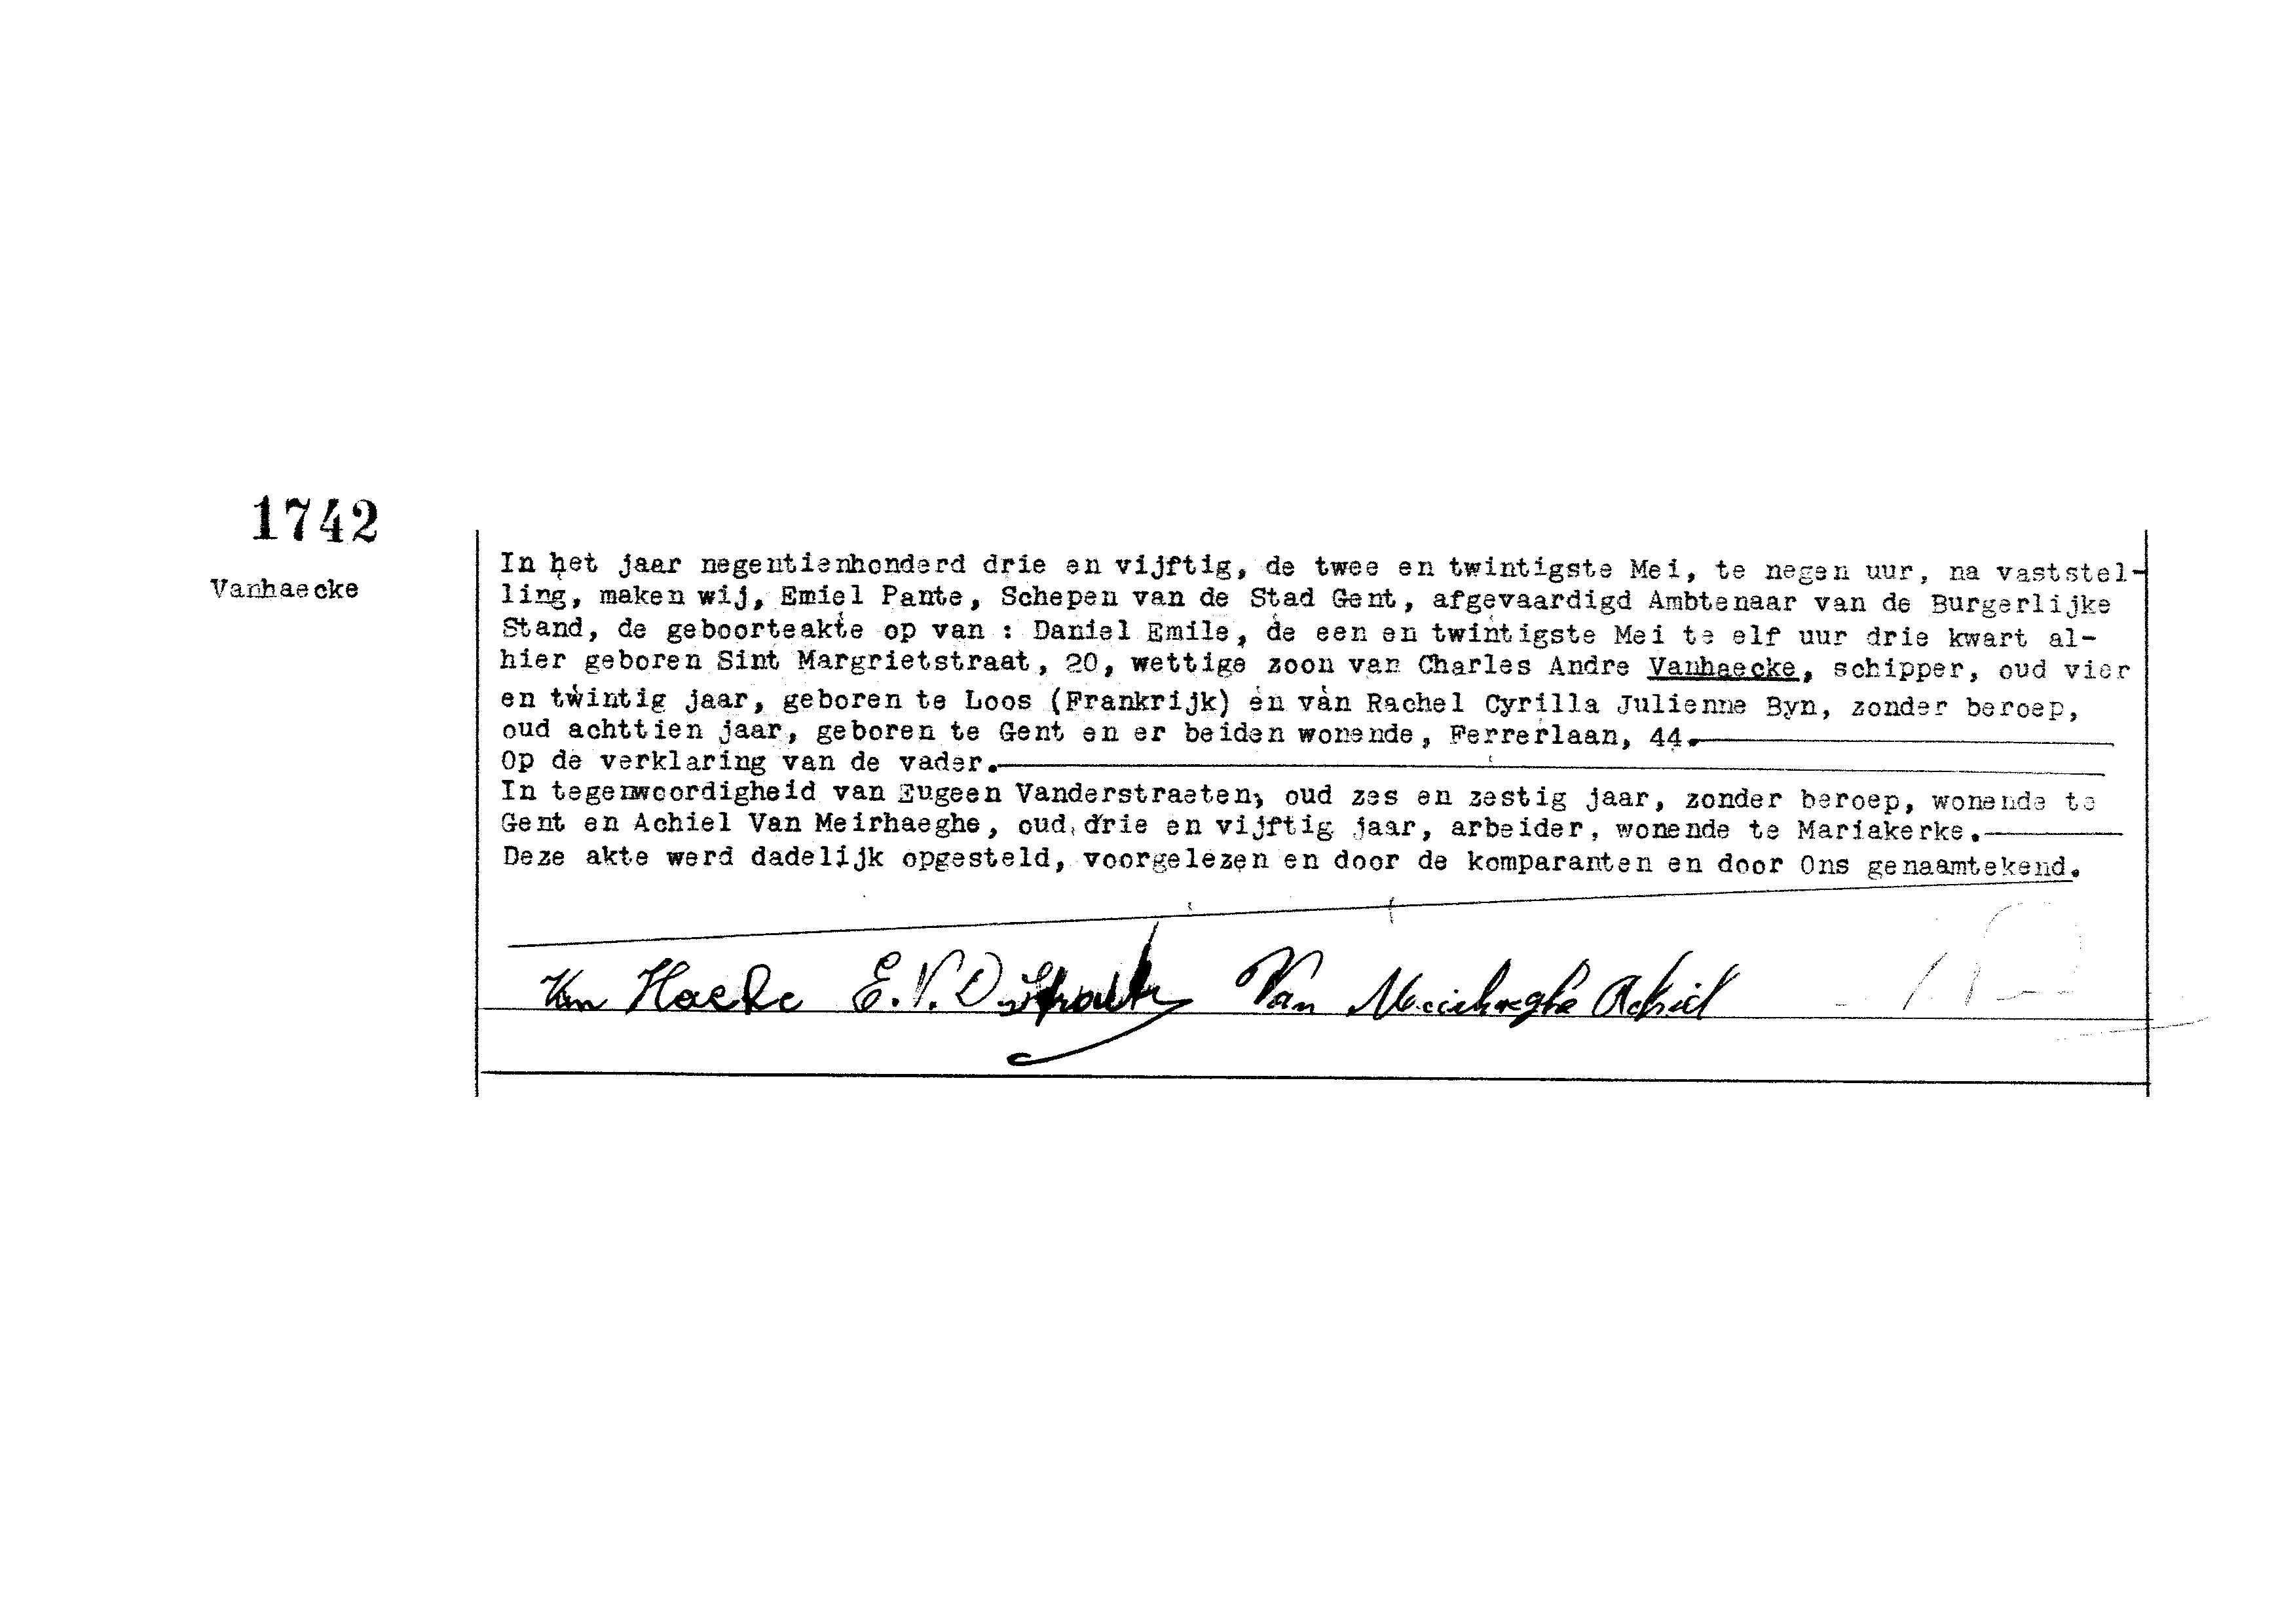 1742
Vanhaecke
In het jaar negentienhonderd drie en vijftig, de twee en twintigste Mei, te negen uur, na vaststel-
ling, maken wij, Emiel Pante, Schepen van de Stad Gent, afgevaardigd Ambtenaar van de Burgerlijke
Stand, de geboorteakte op van : Daniel Emile, de een en twintigste Mei te elf uur drie kwart al-
hier geboren Sint Margrietstraat, 20, wettige zoon van Charles Andre Vanhaecke, schipper, oud vier
en twintig jaar, geboren te Loos (Frankrijk) en van Rachel Cyrilla Julienne Byn, zonder beroep,
oud achttien jaar, geboren te Gent en er beiden wonende, Ferrerlaan, 44.
Op de verklaring van de vader.
In tegenwoordigheid van Eugeen Vanderstraeten, oud zes en zestig jaar, zonder beroep, wonende te
Gent en Achiel Van Meirhaeghe, oud drie en vijftig jaar, arbeider, wonende te Mariakerke.
Deze akte werd dadelijk opgesteld, voorgelezen en door de komparanten en door Ons genaamtekend.
Van Haeke E. V. D. Van Meirhaeghe Achiel